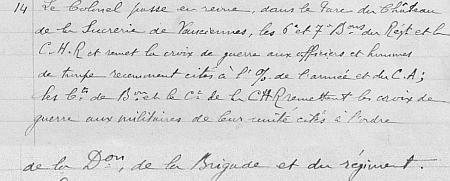 14 Le Colonel passe en revue, dans le Parc du Château
de la Sucrerie de Vauciennes, les 6e et 7e Bons du Régt et la
C.H.R et remet la croix de guerre aux officiers et hommes
de troupe récemment cités à l'% de l'armée et du C.A;
les Cts de Bon et le Ct de la CHR remettent les croix de
guerre aux militaires de leur unité cités à l'ordre
de la Don, de la Brigade et du régiment.